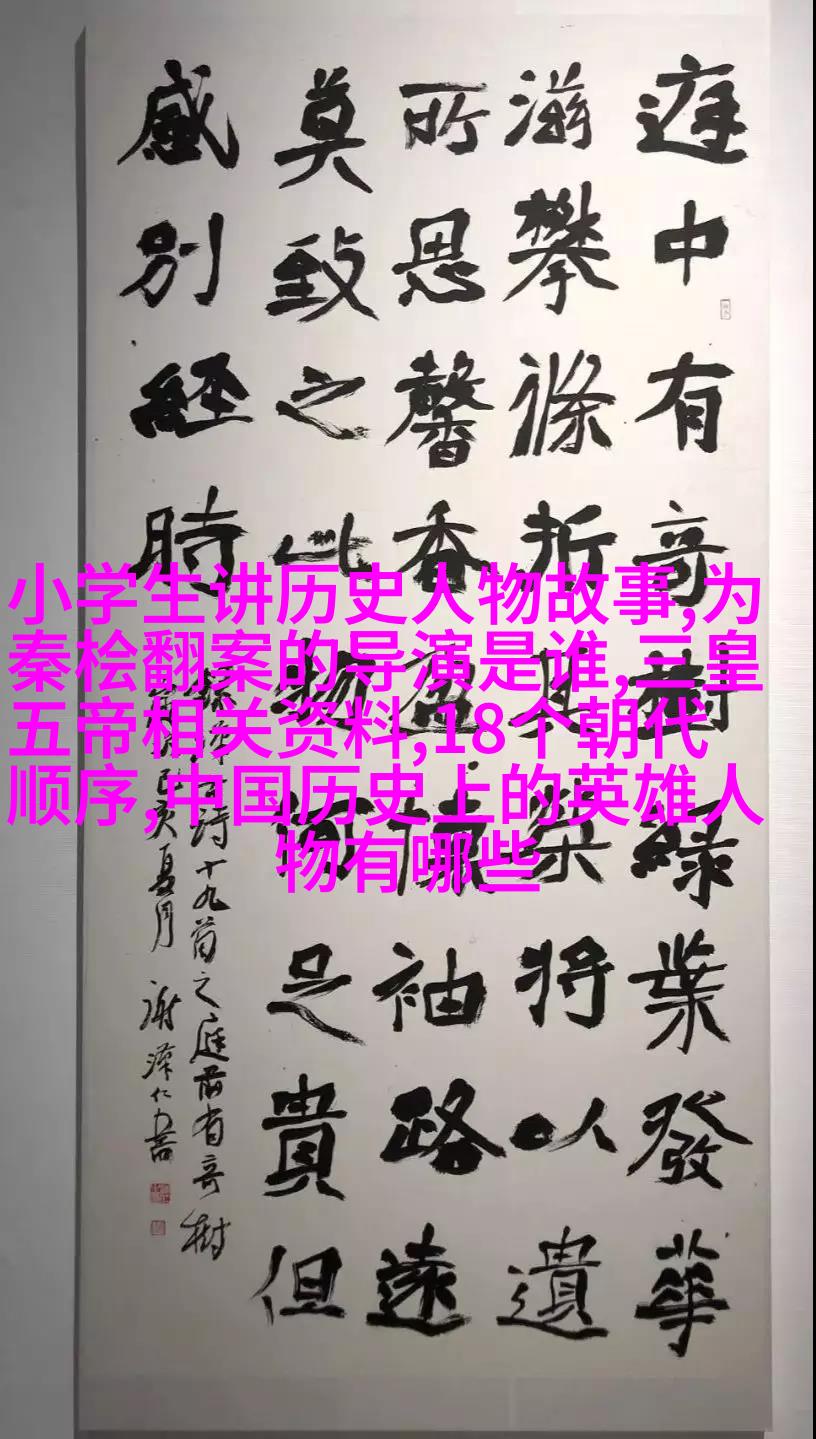 庭中有奇樹綠葉發華
滋攀條折其榮將以遺
所思馨香盈懷袖路遠
莫致之此物何足貴但
感別經時
詩十九首之庭前有奇樹
己亥夏月 謝澤仁書
小学生讲历史人物故事,为
秦桧翻案的导演是谁,三皇
五帝相关资料,18个朝代
顺序,中国历史上的英雄人
物有哪些